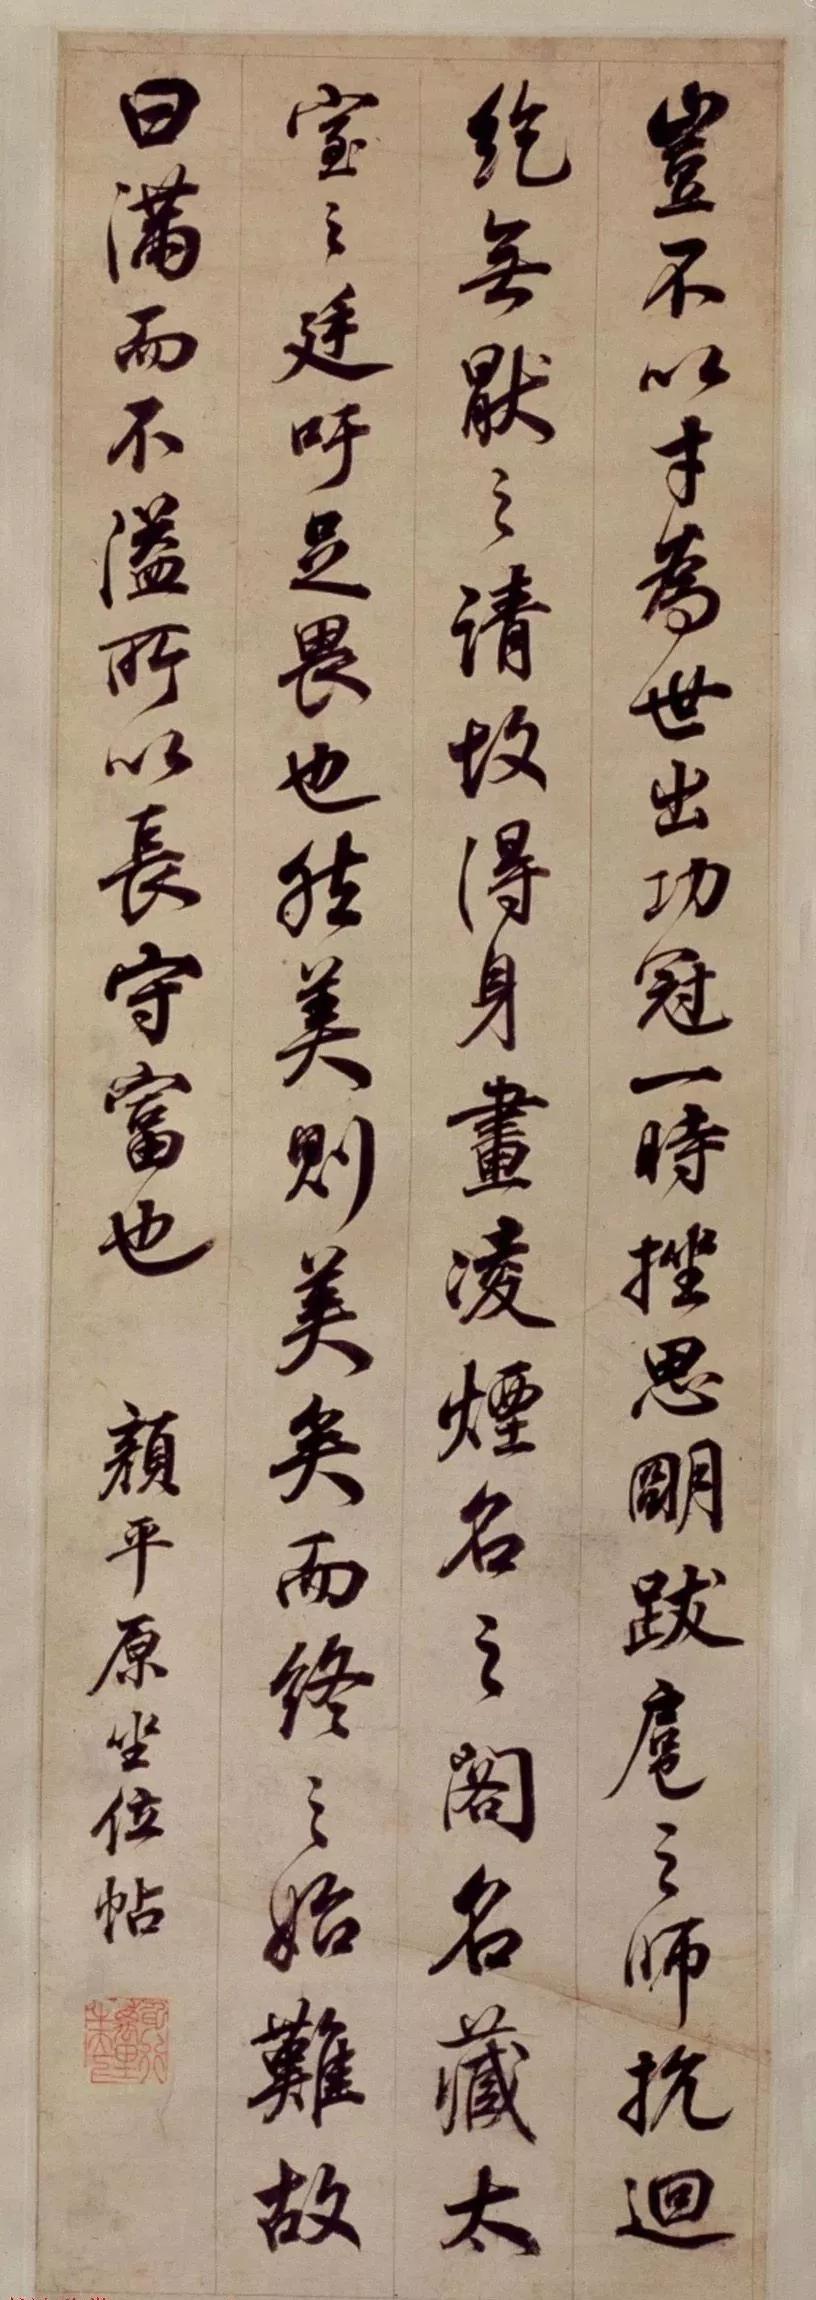 豈不以才為世出功冠一時挫思明跋扈之師抗迴
紇無猒之請故得身畫凌煙名之閣名藏太
室之廷吁足畏也然美則美矣而終之始難故
曰滿而不溢所以長守富也 顏平原坐位帖